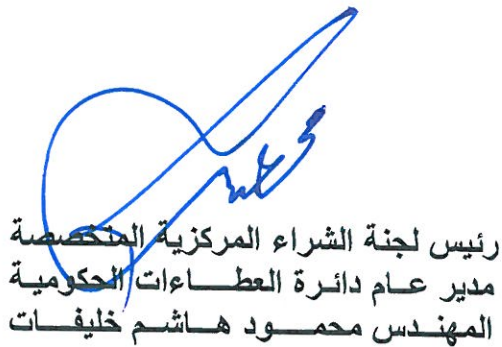 رئيس لجنة الشراء المركزية المتخصصة
مدير عــام دائـرة العطــاءات الحكوميـة
المهنـدس محمــود هــاشـم خليفــات